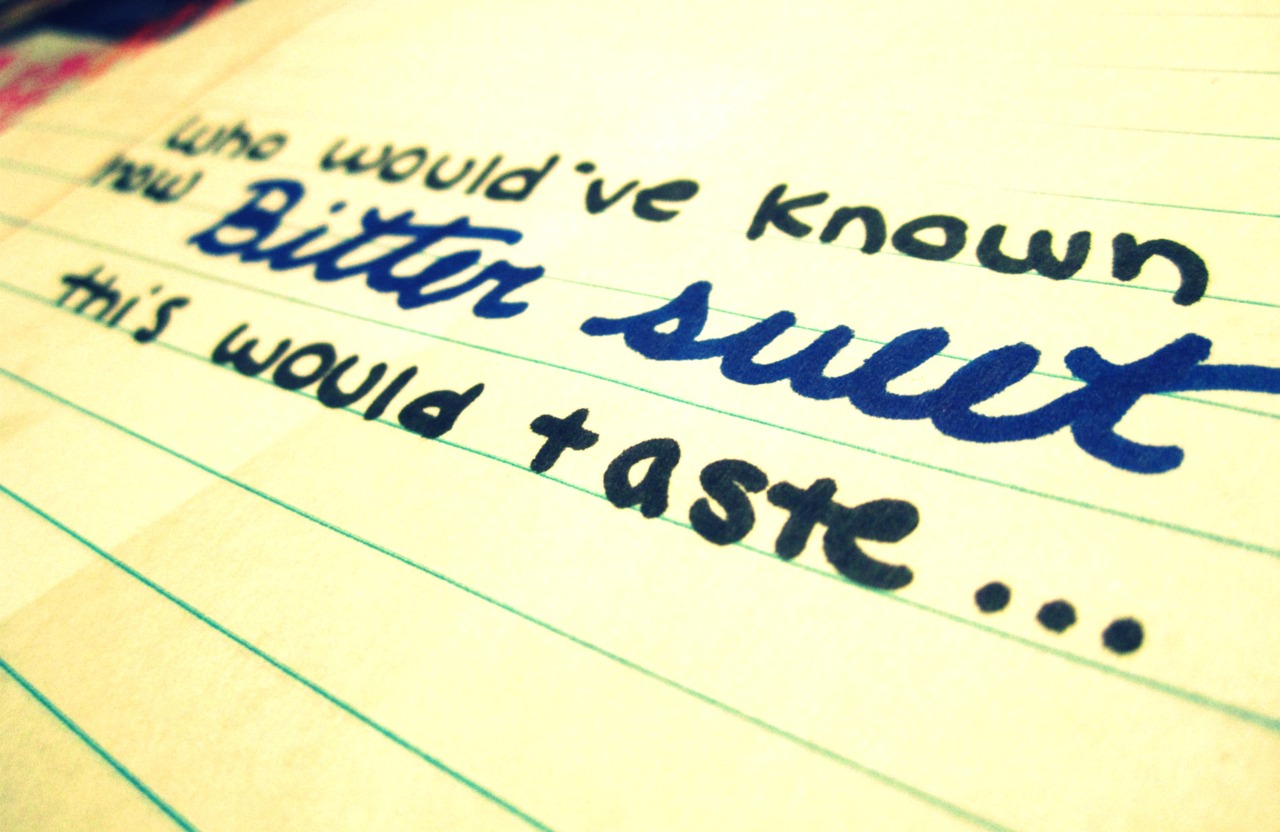 who would've known
how Bitter sweet
this would taste...